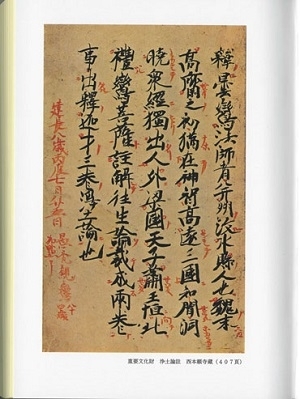 釋曇鸞法師者并州汶水縣人也魏末
高齊之初猶在神智高遠三國知聞洞
曉衆經獨出人外梁國天子蕭王恒北
禮鸞菩薩註解往生論裁成兩卷
事出釋迦才三卷浄土論也
建長八歳丙辰七月廿五日
愚禿親鸞八十四歳
加點了
重要文化財 浄土論註 西本願寺蔵（407頁）